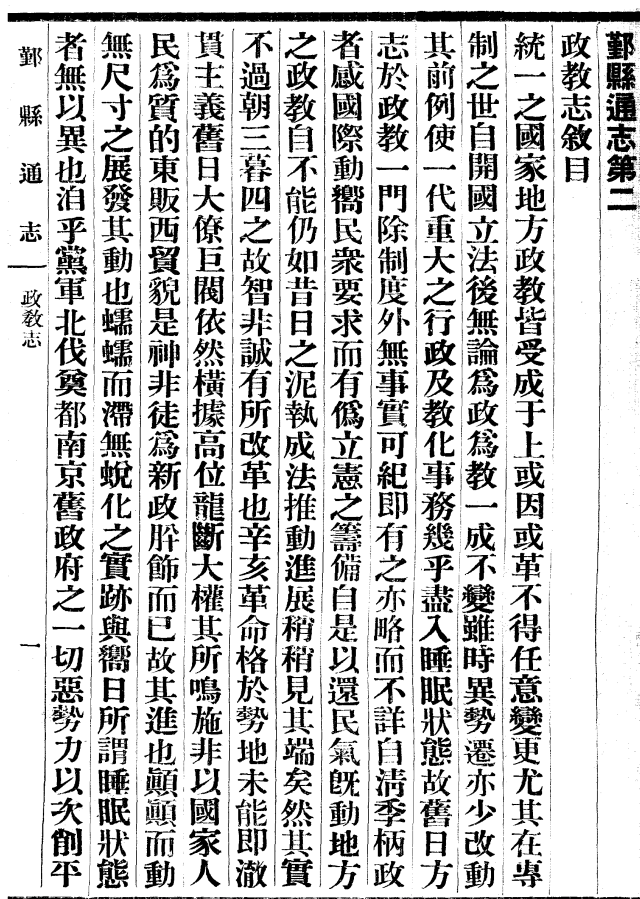 鄞縣通志第二
政教志敘目
統一之國家地方政教皆受成于上或因或革不得任意變更尤其在專
制之世自開國立法後無論爲政爲教一成不變雖時異勢遷亦少改動
其前例使一代重大之行政及教化事務幾乎盡入睡眠狀態故舊日方
志於政教一門除制度外無事實可紀即有之亦略而不詳自淸季柄政
者感國際動嚮民衆要求而有僞立憲之籌備自是以還民氣旣動地方
之政教自不能仍如昔日之泥執成法推動進展稍稍見其端矣然其實
不過朝三暮四之故智非誠有所改革也辛亥革命格於勢地未能即澈
貫主義舊日大僚巨閥依然橫據高位龍斷大權其所鳴施非以國家人
民爲質的東販西貿貌是神非徒爲新政肸飾而已故其進也顚顚而動
無尺寸之展發其動也蠕蠕而滯無蛻化之實跡與嚮日所謂睡眠狀態
者無以異也洎乎黨軍北伐奠都南京舊政府之一切惡勢力以次削平
鄞縣通志 政教志 一